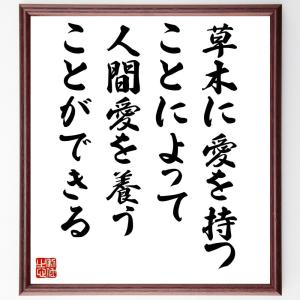 草木に愛を持つ
ことによって
人間愛を養う
ことができる